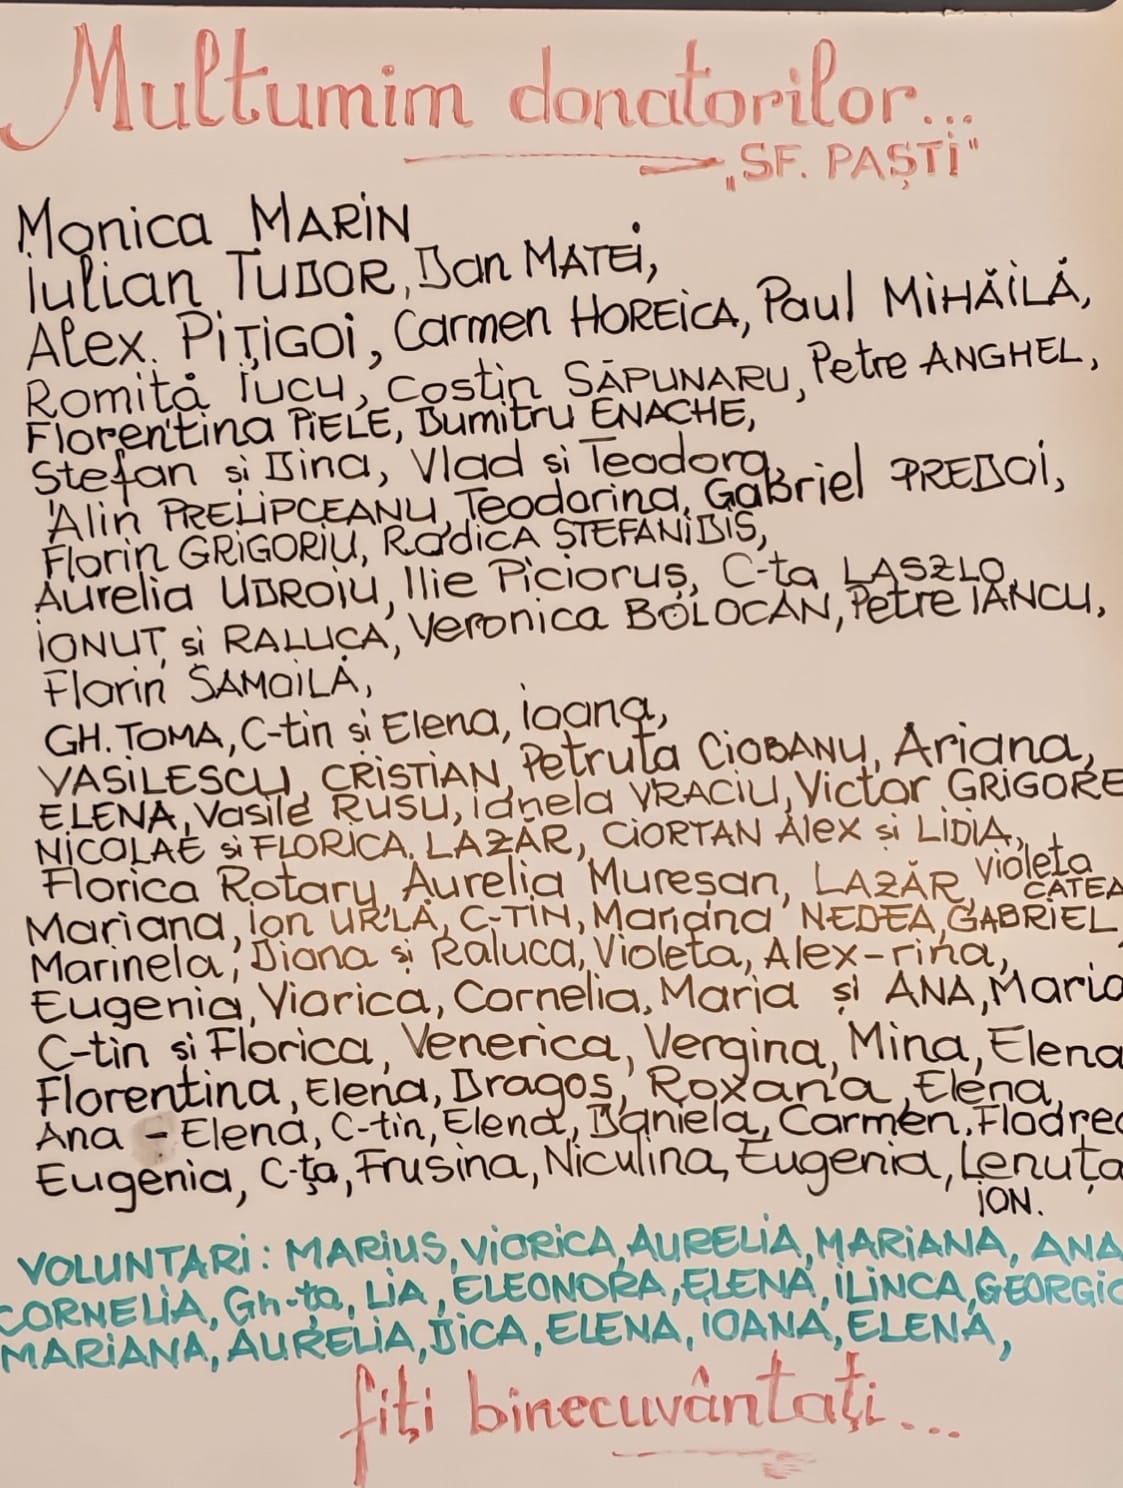 Multumim donatorilor...
„SF. PAȘTI"
Monica MARIN
Iulian TUDOR, Dan MATEI,
Alex. PIȚIGOI, Carmen HOREICA, Paul MIHĂILĂ,
Romită Iucu, Costin SĂPUNARU, Petre ANGHEL,
Florentina PIELE, Dumitru ENACHE,
Stefan și Dina, Vlad și Teodora,
Alin PRELIPCEANU, Teodorina, Gabriel PREDOI,
Florin GRIGORIU, Rodica STEFANIDIS,
Aurelia UDROIU, Ilie Piciorus, C-ta LASZLO,
IONUȚ și RALUCA, Veronica BOLOCAN, Petre IANCU,
Florin SAMOILĂ,
GH. TOMA, C-tin și Elena, Ioana,
VASILESCU CRISTIAN, Petruta CIOBANU, Ariana,
ELENA, Vasile RUSU, Ianela VRACIU, Victor GRIGORE
NICOLAE și FLORICA, LAZĂR, CIORTAN Alex și LIDIA,
Florica Rotary, Aurelia Muresan, LAZĂR, Violeta CATEA
Mariana, Ion URLĂ, C-TIN, Mariana NEDEA, GABRIEL
Marinela, Diana și Raluca, Violeta, Alex-rina,
Eugenia, Viorica, Cornelia, Maria și ANA, Maria
C-tin și Florica, Venerica, Vergina, Mina, Elena
Florentina, Elena, Dragos, Roxana, Elena,
Ana - Elena, C-tin, Elena, Daniela, Carmen, Floare
Eugenia, C-ța, Frusina, Niculina, Eugenia, Lenuța
ION.
VOLUNTARI: MARIUS, VIORICA, AURELIA, MARIANA, ANA
CORNELIA, Gh-ța, LIA, ELEONORA, ELENA, ILINCA, GEORGIC
MARIANA, AURELIA, DICA, ELENA, IOANA, ELENA,
fiți binecuvântați...